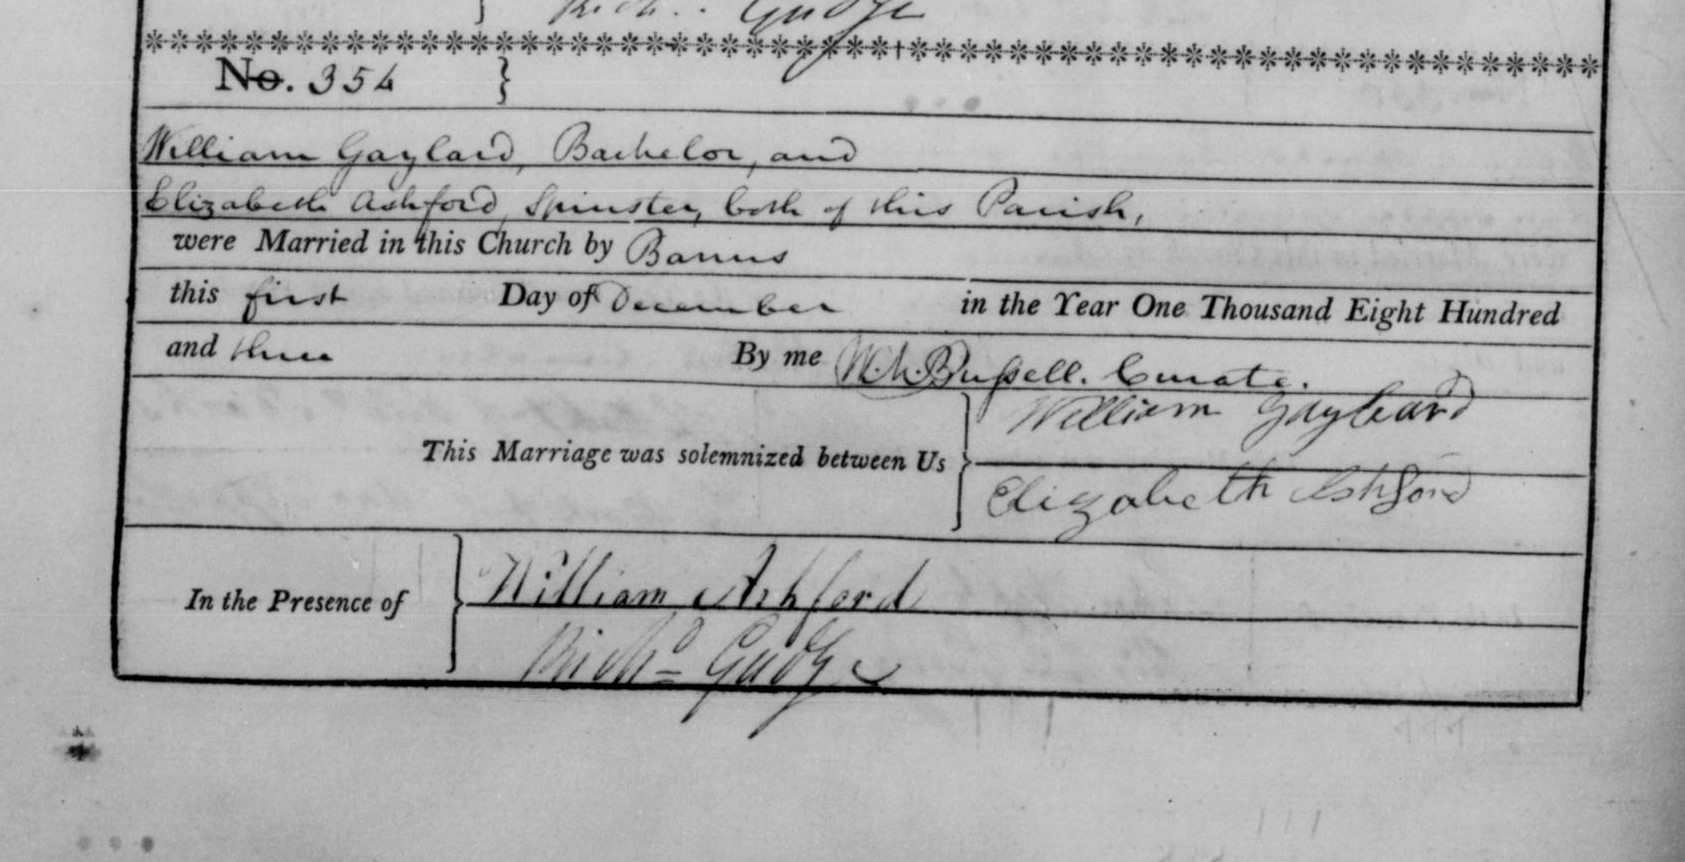 Rich.d Gudge
No. 354
William Gaylard, Bachelor, and
Elizabeth Ashford, Spinster, both of this Parish,
were Married in this Church by Banns
this first Day of December in the Year One Thousand Eight Hundred
and three By me W. M. Bussell. Curate.
William Gayleard
This Marriage was solemnized between Us
Elizabeth Ashford
William Ashford
In the Presence of
Richd Gudge